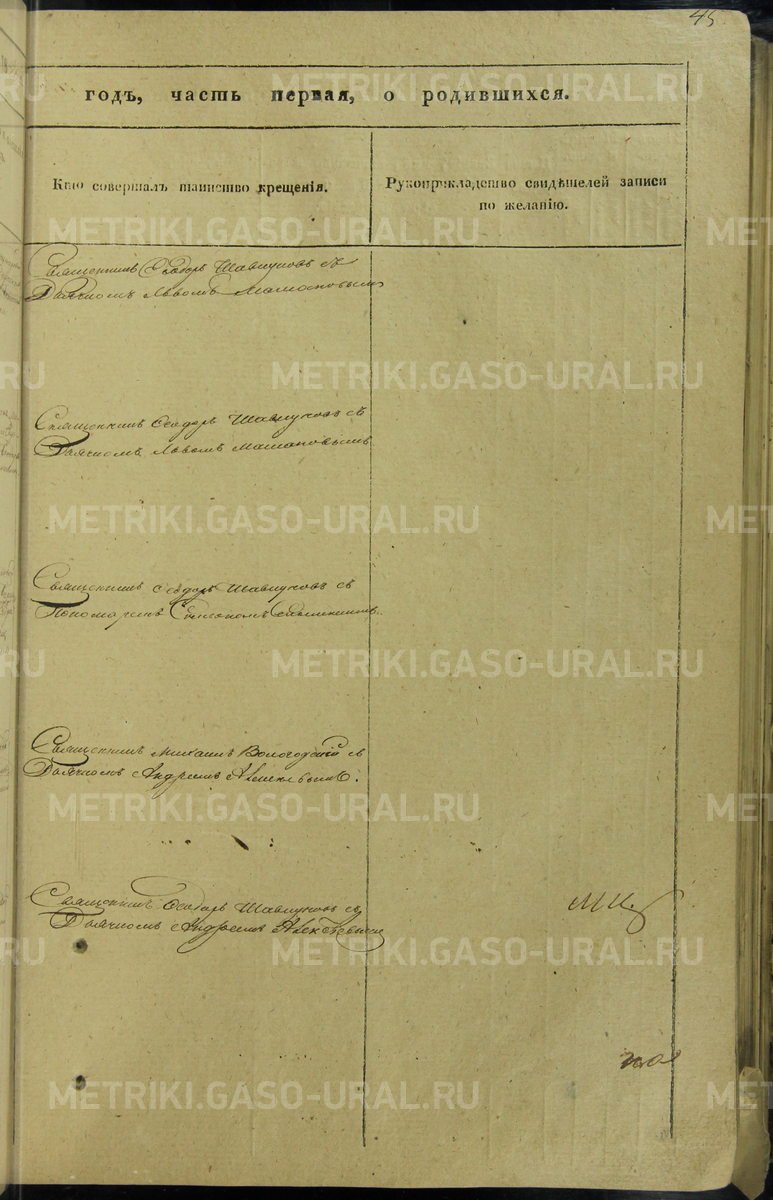 45
годъ, часть первая, о родившихся.
Кто совершалъ таинство крещенія.
Рукоприкладство свидѣтелей записи
по желанію.
Священникъ Ѳеодоръ Шавкуновъ съ
Дьячкомъ Львомъ
Священникъ Ѳеодоръ Шавкуновъ съ
Дьячкомъ Львомъ
Священникъ Ѳеодоръ Шавкуновъ съ
Пономаремъ
Священникъ Михаилъ Вологодскій съ
Дьячкомъ Андреемъ Алексѣевымъ.
Священникъ Ѳеодоръ Шавкуновъ съ
Дьячкомъ Андреемъ Алексѣевымъ
METRIKI.GASO-URAL.RU